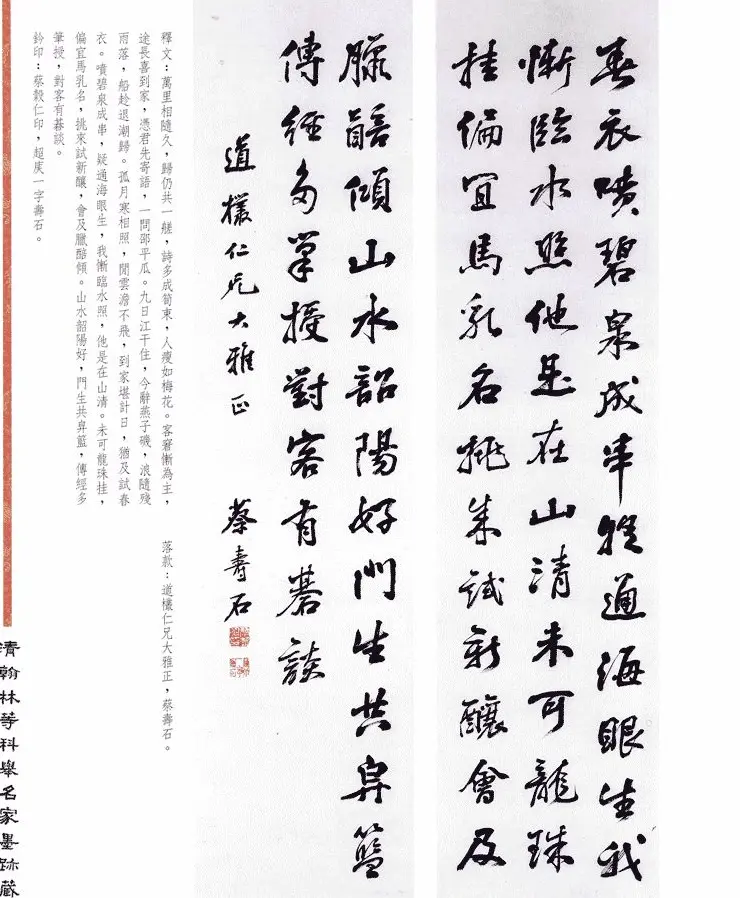 春衣噴碧泉成串疑通海眼生我
慚臨水照他是在山清未可龍珠
挂偏宜馬乳名挑來試新釀會及
臘醅傾山水韶陽好門生共舁籃
傳經多筆授對客有碁談
道檥仁兄大雅正 蔡壽石
釋文：萬里相隨久，歸仍共一艖，詩多成筍束，人瘦如梅花。客窘慚為主，
途長喜到家，憑君先寄語，一問邵平瓜。九日江干住，今辭燕子磯，浪隨殘
雨落，船趁退潮歸。孤月寒相照，閒雲澹不飛，到家堪計日，猶及試春
衣。噴碧泉成串，疑通海眼生，我慚臨水照，他是在山清。未可龍珠挂，
偏宜馬乳名，挑來試新釀，會及臘醅傾。山水韶陽好，門生共舁籃，傳經多
筆授，對客有碁談。
鈐印：蔡穀仁印，超庚一字壽石。
落款：道檥仁兄大雅正，蔡壽石。
清翰林等科舉名家墨跡藏